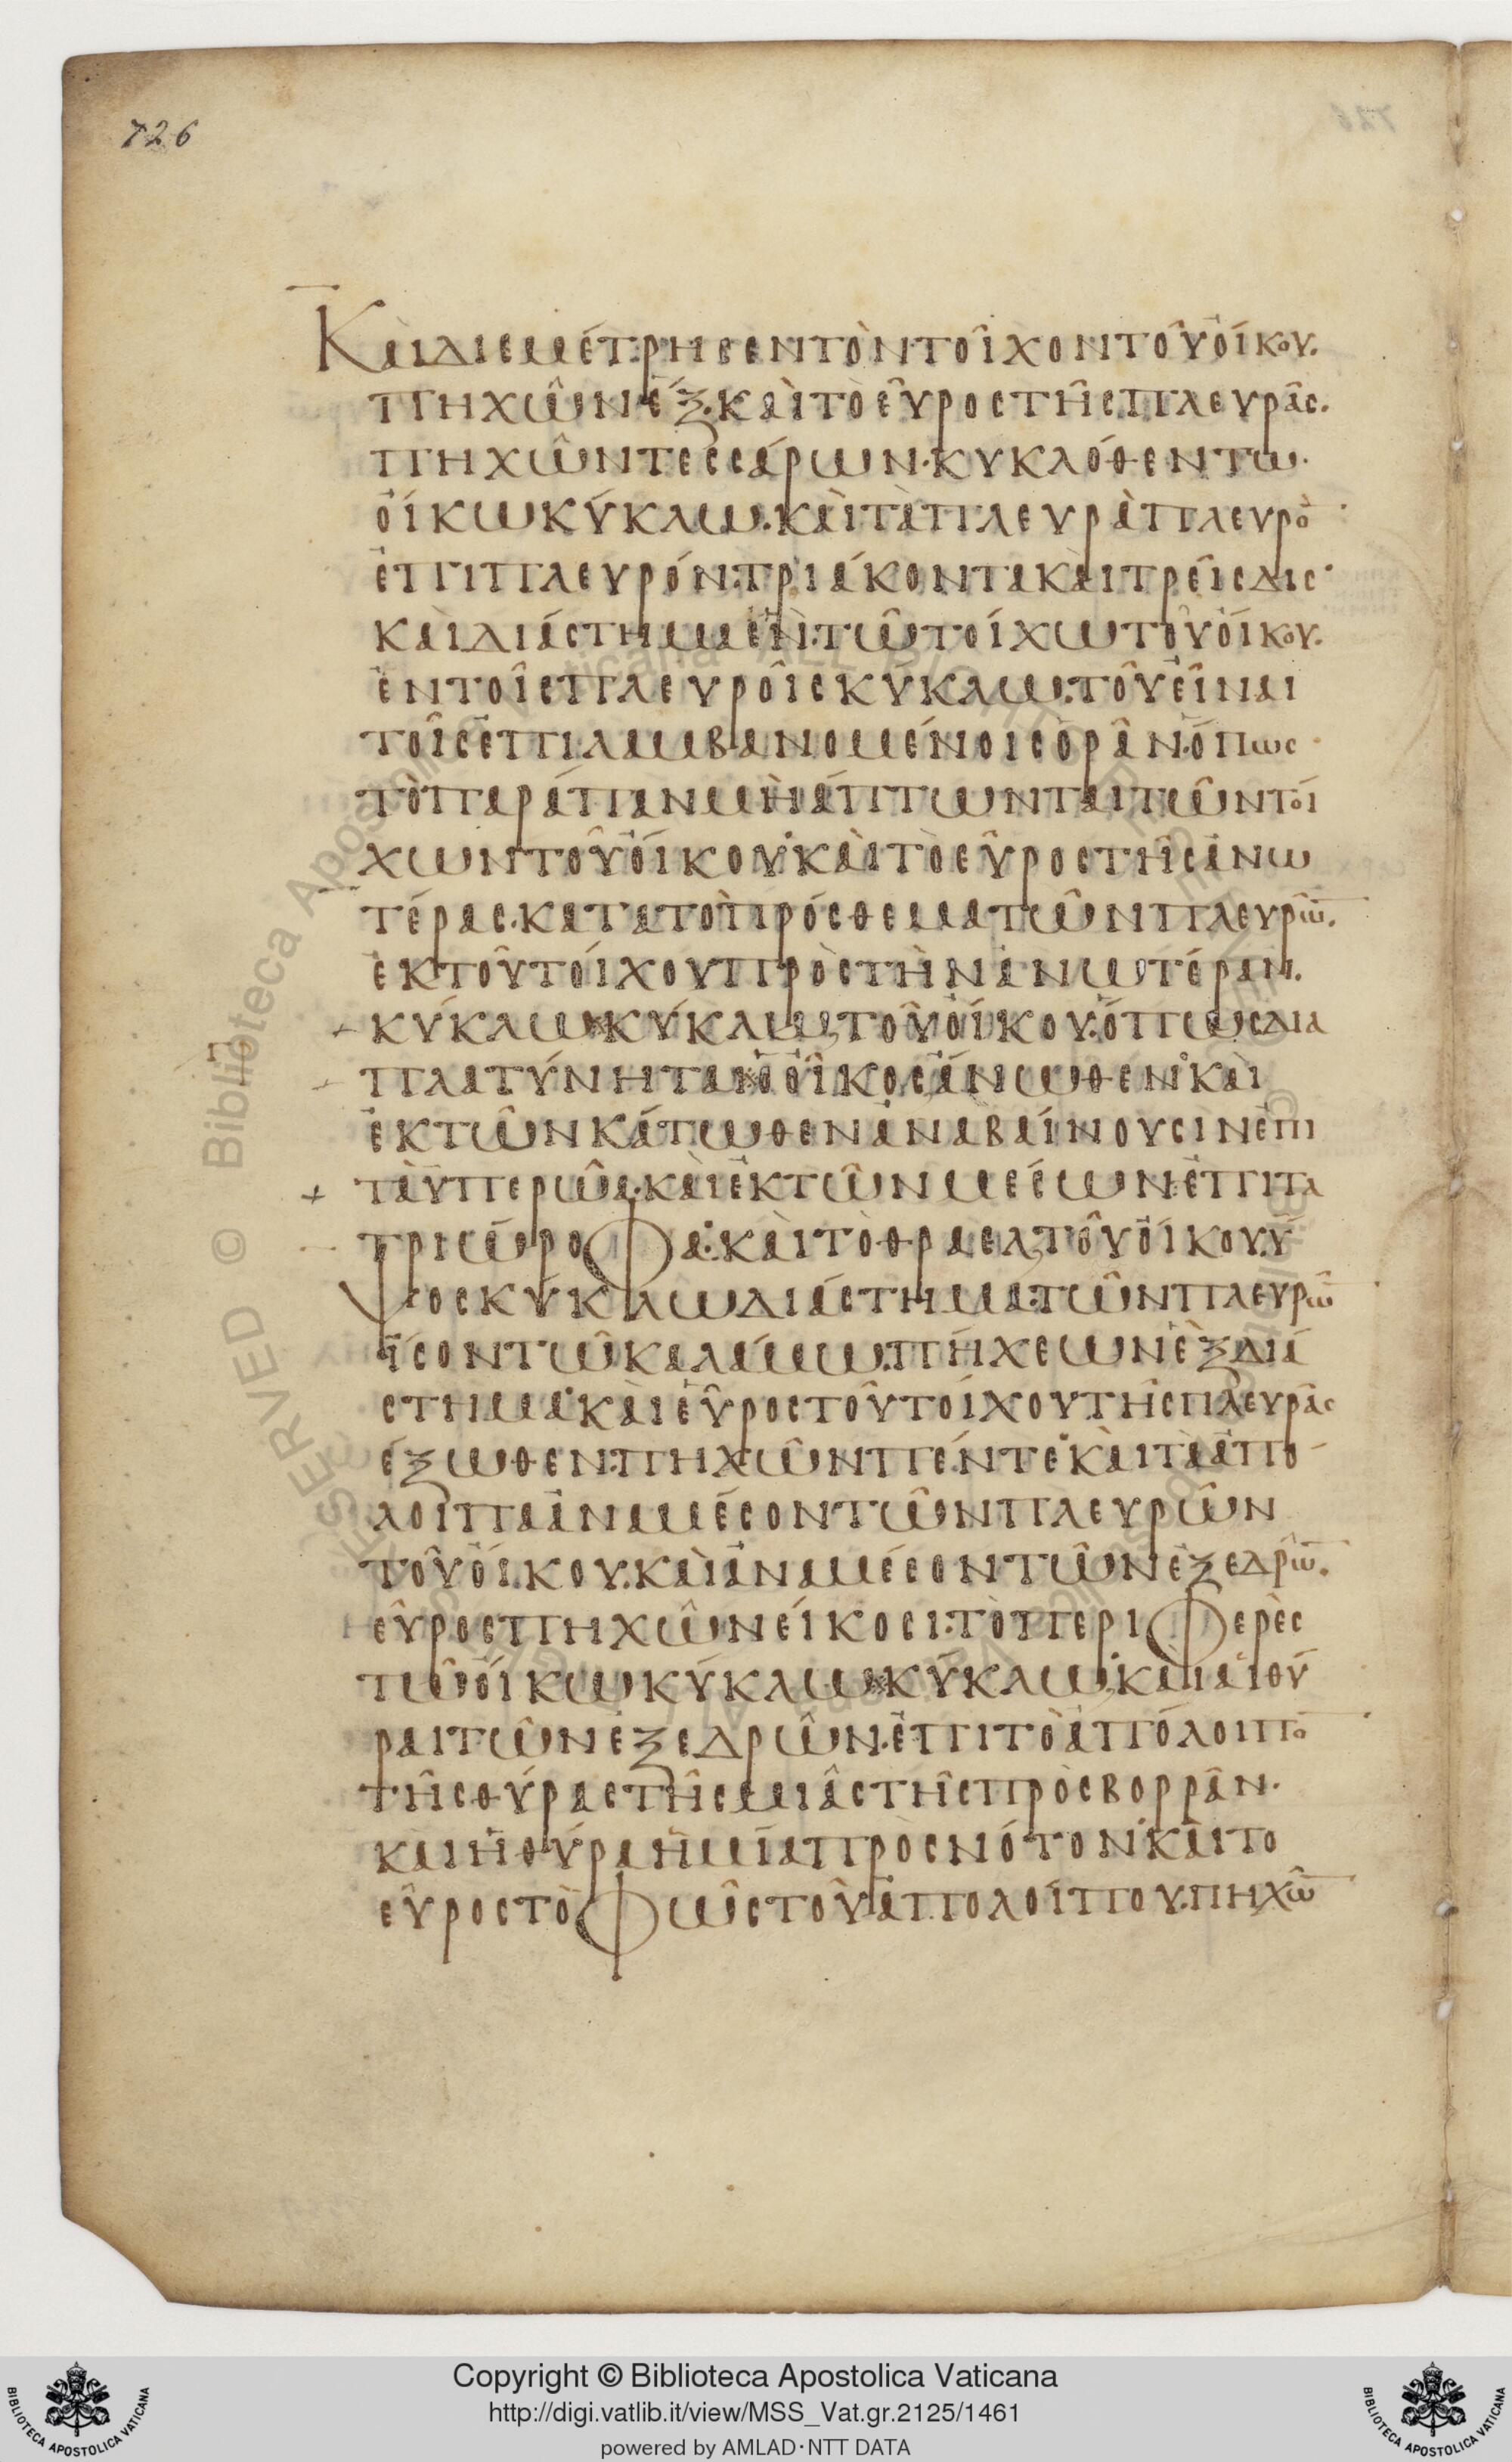 726
Καὶ διεμέτρησεν τὸν τοῖχον τοῦ ὀίκου.
πηχῶν ἕξ. καὶ τὸ εὖρος τῆς πλευρᾶς.
πηχῶν τεσσάρων. κυκλόθεν τω
ὀίκω κύκλω. καὶ τὰ πλευρὰ πλευρὸ̅
ἐπι πλευρόν. τριάκοντα καὶ τρεῖς δις·
καὶ διάστημα ἐν τῶ τοίχω τοῦ ὀίκου.
ἐν τοῖς πλευροῖς κύκλω. τοῦ εἶναι
τοῖς ἐπιλαμβανομένοις ὁρᾶν. ὅπως
τὸ παράπαν μὴ ἅπτωνται τῶν τοί
χων τοῦ ὀίκου· καὶ τὸ εὖρος τῆς ἀνω
τέρας. κατα τὸ πρόσθεμα τῶν πλευρῶ̅.
ἐκ τοῦ τοίχου πρὸς τὴν ἀνωτέραν.
κύκλω ※ κύκλω τοῦ ὀίκου. ὅπως δια
πλατύνηται ὁ οἶκος ἄνωθεν· καὶ
ἐκ τῶν κάτωθεν ἀναβαίνουσιν ἐπι
τὰ ὑπερῶα. καὶ ἐκ τῶν μέσων ἐπι τα
τριώροφα· καὶ τὸ θραελ τοῦ ὀίκου. ὕ
ψος κύκλω διάστημα. τῶν πλευρῶ̅
ἴσον τῶ καλάμω. πήχεων ἓξ διά
στημα· καὶ εὖρος τοῦ τοίχου τῆς πλευρᾶς
ἔξωθεν. πηχῶν πέντε· καὶ τὰ ἀπο
λοιπα ἀναμέσον τῶν πλευρῶν
τοῦ ὀίκου. καὶ ἀναμέσον τῶν ἐξεδρῶ̅.
εὖρος πηχῶν είκοσι. τὸ περιφερὲς
τῶ ὀίκω κύκλω ※ κύκλω· καὶ αἱ θύ
ραι τῶν ἐξεδρῶν. ἐπι τὸ ἀπόλοιπο̅
τῆς θύρας τῆς μιᾶς τῆς πρὸς βορρᾶν.
καὶ ἡ θύρα ἡ μία πρὸς νότον· καὶ το
εὖρος τὸ φῶς τοῦ ἀπολοίπου. πηχῶ̅
Copyright © Biblioteca Apostolica Vaticana
http://digi.vatlib.it/view/MSS_Vat.gr.2125/1461
powered by AMLAD·NTT DATA